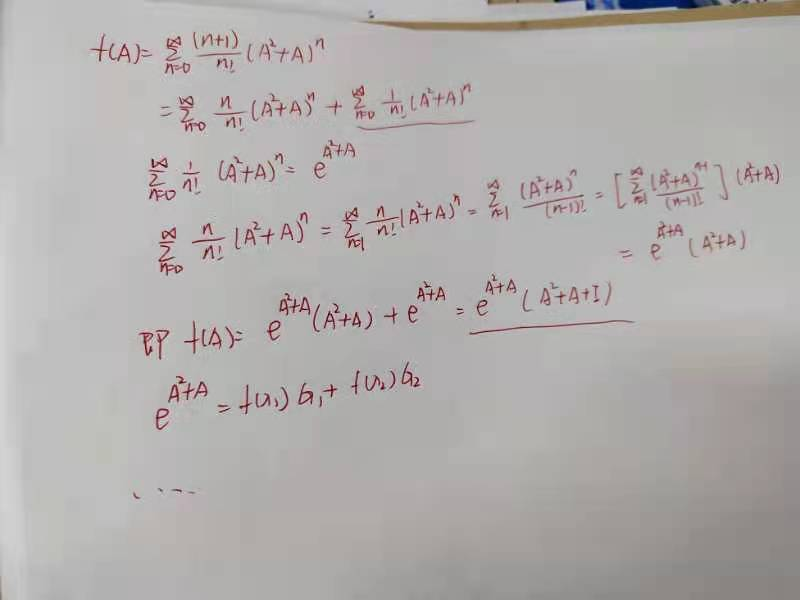 f(A) = ∑_{n=0}^{∞} (n+1)/n! (A²+A)ⁿ
= ∑_{n=0}^{∞} n/n! (A²+A)ⁿ + ∑_{n=0}^{∞} 1/n! (A²+A)ⁿ
∑_{n=0}^{∞} 1/n! (A²+A)ⁿ = e^{A²+A}
∑_{n=0}^{∞} n/n! (A²+A)ⁿ = ∑_{n=1}^{∞} n/n! (A²+A)ⁿ = ∑_{n=1}^{∞} (A²+A)ⁿ/(n-1)! = [∑_{n=1}^{∞} (A²+A)^{n-1}/(n-1)!] (A²+A)
= e^{A²+A} (A²+A)
即 f(A) = e^{A²+A} (A²+A) + e^{A²+A} = e^{A²+A} (A²+A+I)
e^{A²+A} = f(λ₁) G₁ + f(λ₂) G₂
......